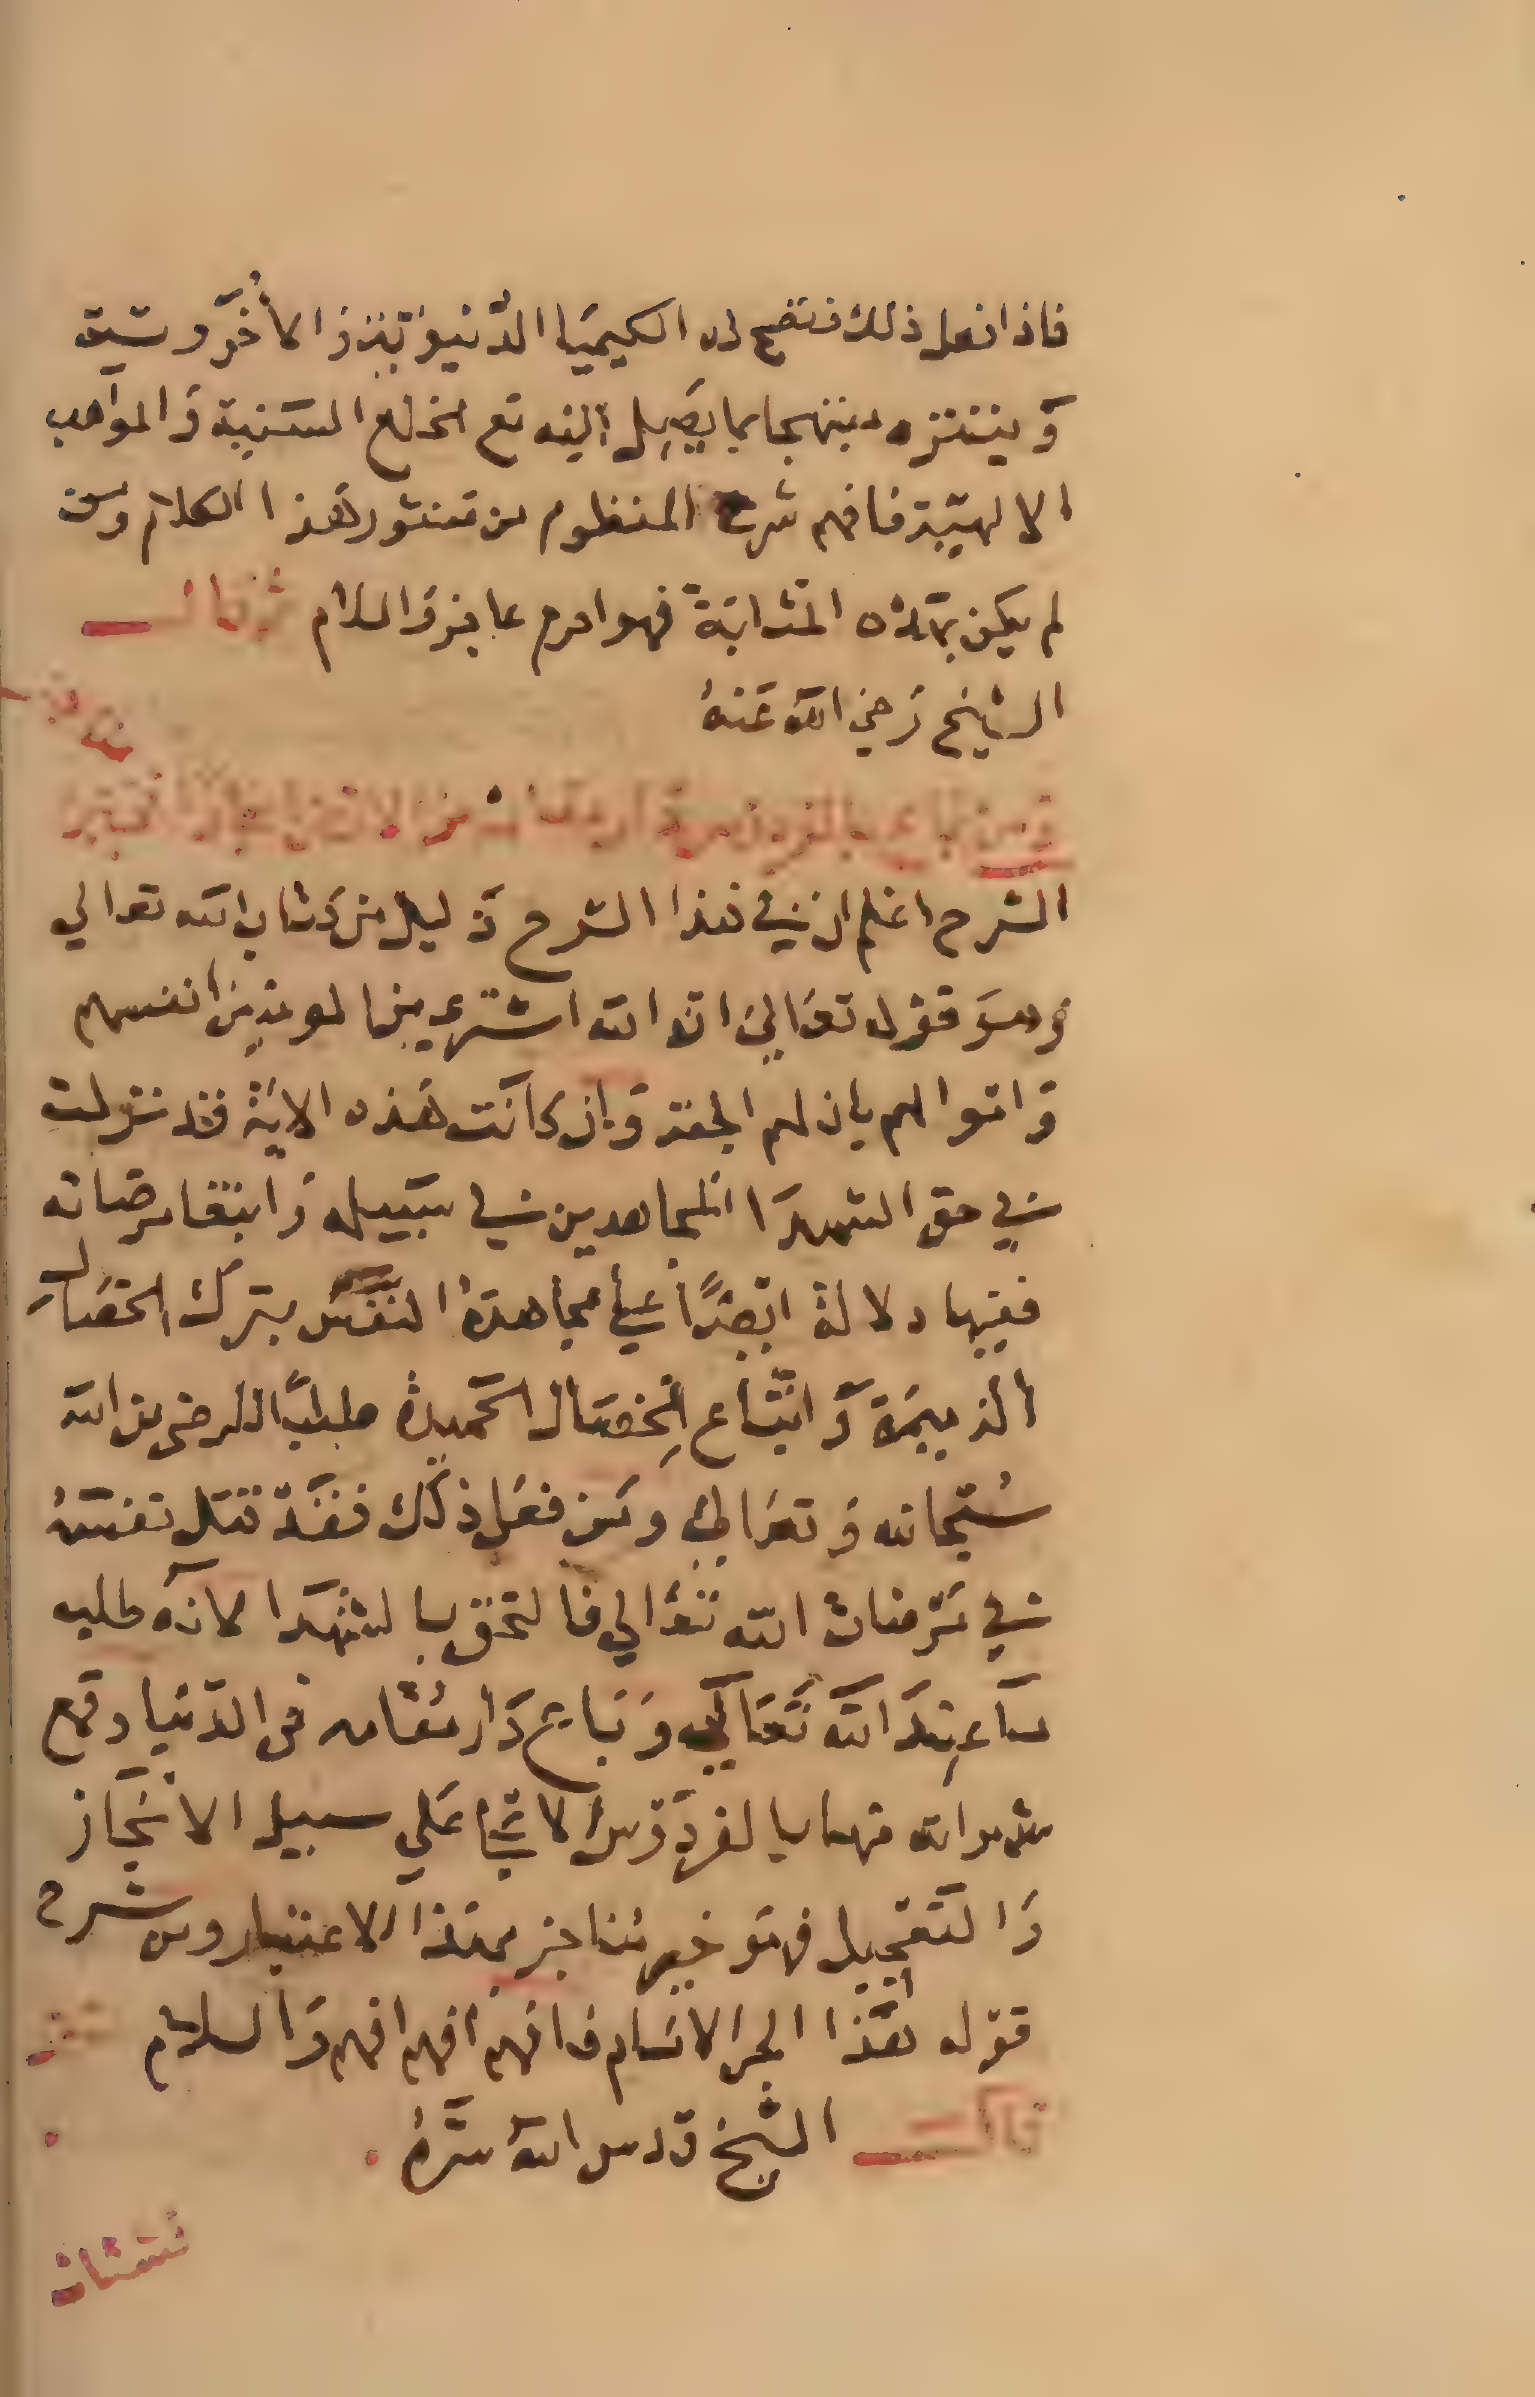 فاذا فعل ذلك فتقع له الكيميا الدنيوية والاخروية
وينتزه مبتهجا بما يصل اليه مع الخلع السنية والمواهب
الالهية فافهم شرح المنظوم من منثور هذا الكلام ومن
لم يكن بهذه المثابة فهو احرم عاجز والسلام ثم قال
الشيخ رضي الله عنه
ومن باع بالفردوس دار
الشرح اعلم ان في هذا الشرح دليل من كتاب الله تعالي
وهو قوله تعالي ان الله اشتري من المومنين انفسهم
واموالهم بان لهم الجنة وان كانت هذه الاية قد نزلت
في حق الشهدا المجاهدين في سبيله وابتغا مرضاته
ففيها دلالة ايضا علي مجاهدة النفس بترك الخصال
الذميمة واتباع الخصال الحميدة طلبا للرضي من الله
سبحانه وتعالي ومن فعل ذلك فقد قتل نفسه
في مرضات الله تعالي فالتحق بالشهدا لانه طلبه
ما عند الله تعالي وباع دار مقامه في الدنيا وقع
من الله بالفردوس علي سبيل الانجاز
والتعجيل فهو خير مناجز بهذا الاعتبار ومن شرح
قوله هذا فافهم افهم افهم والسلام
قال الشيخ قدس الله سره